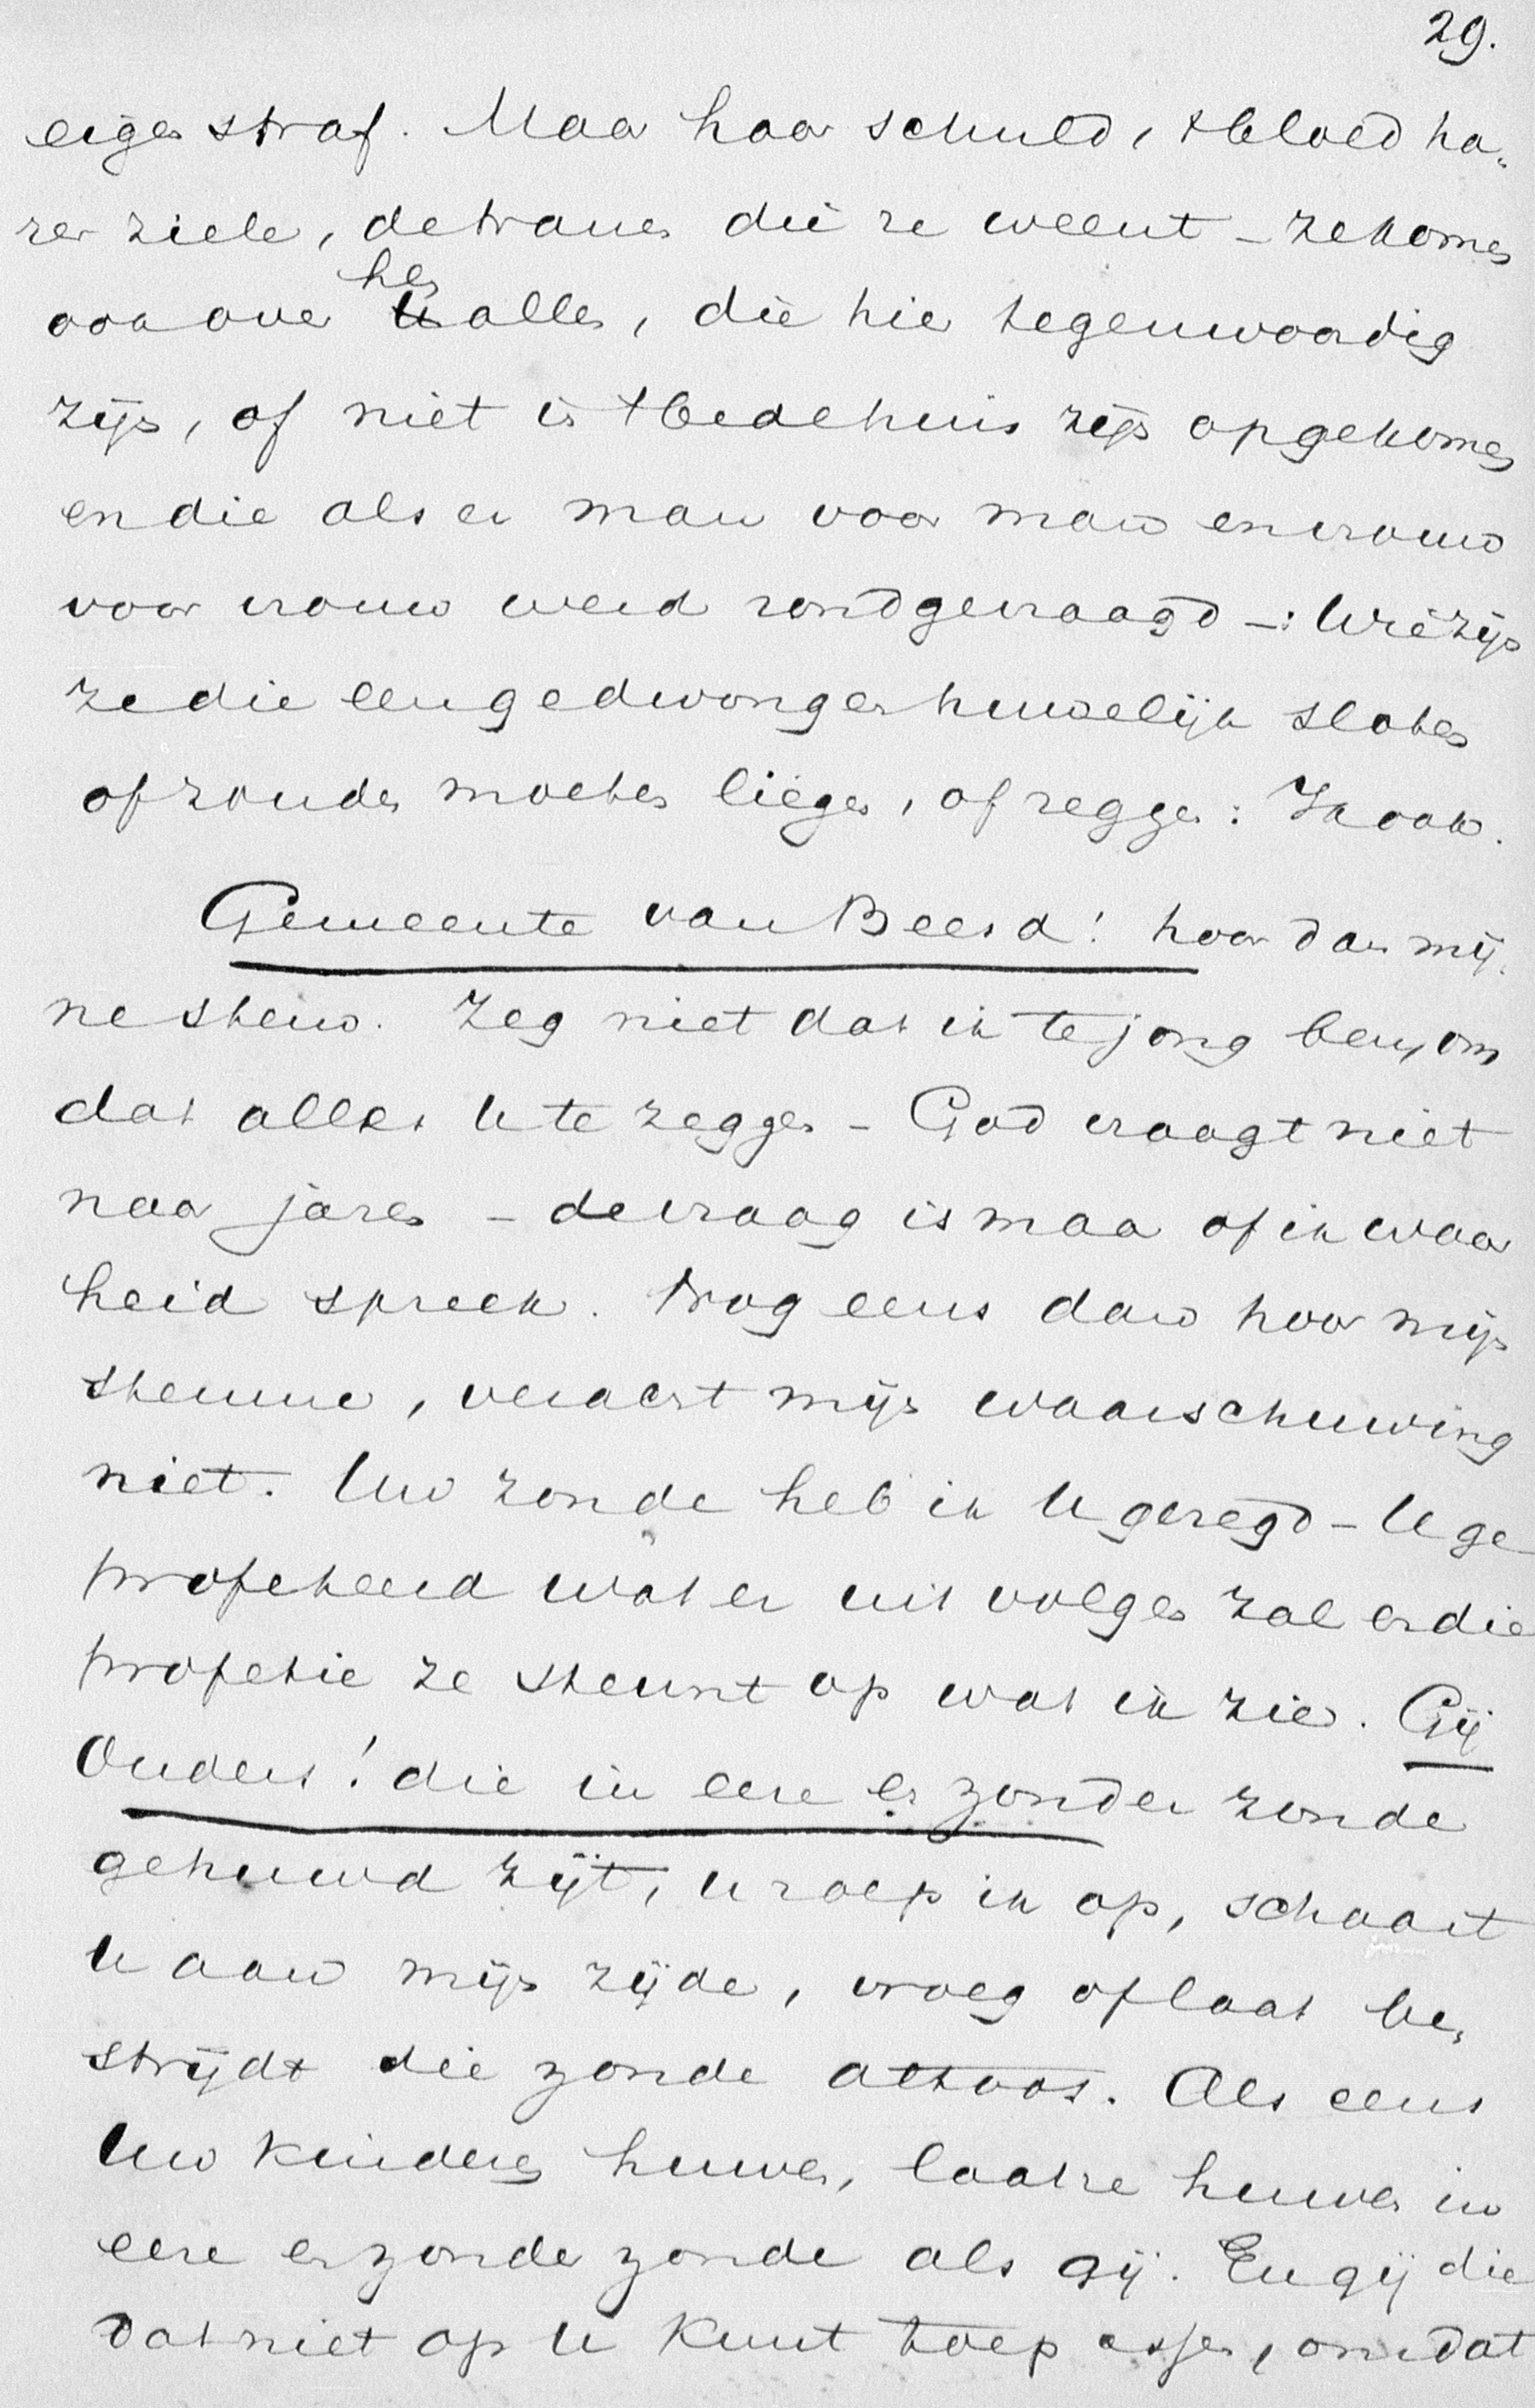 29.
eigen straf. Maar haar schuld, 't bloed ha„
rer ziele, de tranen die ze weent – ze komen
ook over hen allen, die hier tegenwoordig
zijn, of niet in 't bedehuis zijn opgekomen
en die als er man voor man en vrouw
voor vrouw werd rondgevraagd –: Wie zijn
ze die een gedwongen huwelijk sloten
of zouden moeten liegen, of zeggen: Ik ook.
Gemeente van Beesd! hoor dan mij„
ne stem. Zeg niet dat ik te jong ben, om
dat alles U te zeggen – God vraagt niet
naar jaren – de vraag is maar of ik waar
heid spreek. Nog eens dan hoor mijn
stemme, veracht mijn waarschuwing
niet. Uw zonde heb ik U gezegd – U ge
profeteerd wat er uit volgen zal en die
profetie ze steunt op wat ik zie. Gij
Ouders! die in eere en zonder zonde
gehuwd zijt, U roep ik op, schaart
U aan mijn zijde, vroeg of laat be„
strijdt die zonde altoos. Als eens
Uw kinderen huwen, laat ze huwen in
eere en zonder zonde als gij. En gij die
dat niet op U kunt toepassen, omdat